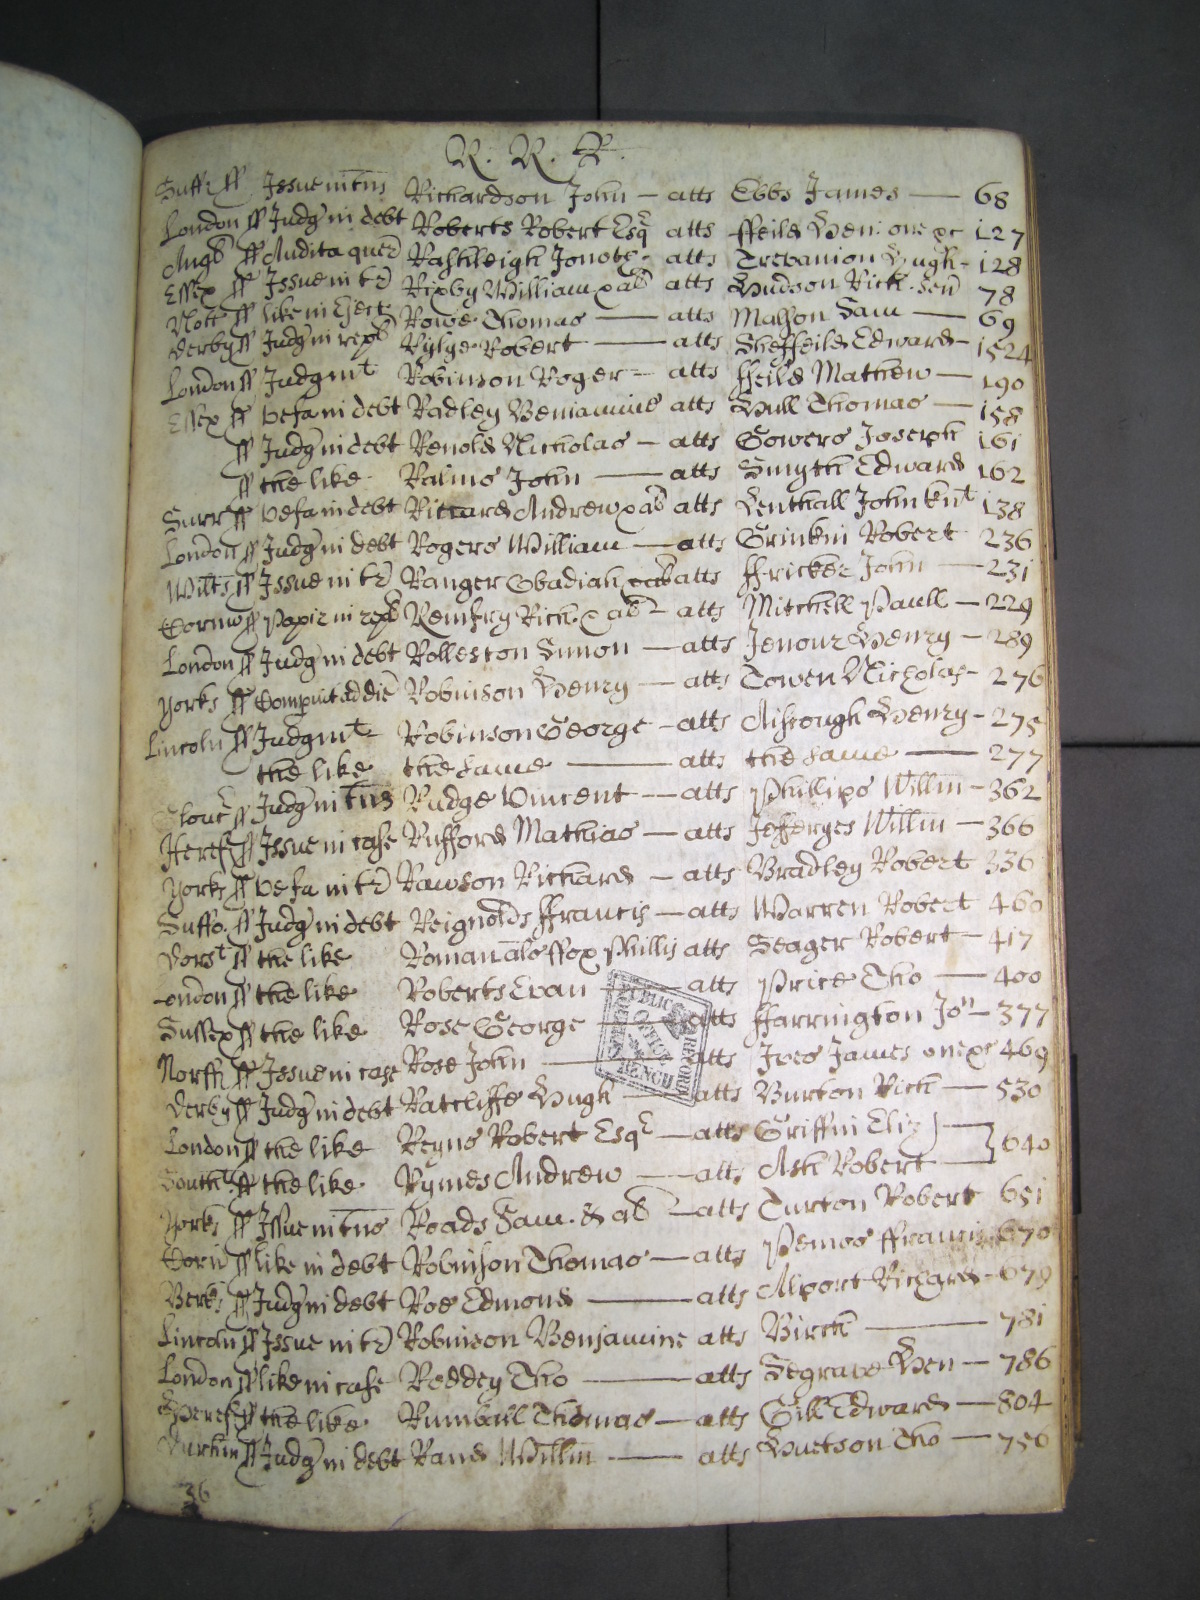 R. R. R.
Suff: ss Issue in tns Richardson John — atts Ebbs James — 68
London ss Judg in debt Roberts Robert Esqr atts ffeild Hen: one &c 127
Angl ss Audita quer Rashleigh Jonoth - atts Trevanion Hugh - 128
Essex ss Issue in tr Rixby William & al atts Hudson Rich. sen 78
Nott ss like in Eject Rowe Thomas — atts Mason Sam — 69
Derby ss Judg in repl Rylye Robert — atts Sheffeild Edward - 1524
London ss Judgmt Robinson Roger - atts ffeild Mathew — 190
Essex ss Defa in debt Radley Beniamine atts Hull Thomas — 158
ss Judg in debt Renold Nicholas — atts Gowers Joseph 161
ss the like Ralins John — atts Smyth Edward 162
Surr ss Defa in debt Riccard Andrew & al atts Lenthall John knt 138
London ss Judg in debt Rogers William — atts Grinkin Robert 236
Wilts ss Issue in tr Ranger Obadiah & al atts ffricker John — 231
Cornw ss Papir in repl Remfry Rich. & al - atts Mitchell Paull — 229
London ss Judg in debt Rolleston Simon — atts Jenour Henry — 289
Yorks ss Comput ad die Robinson Henry — atts Towen Nicholas - 276
Lincoln ss Judgmt Robinson George - atts Aiscough Henry - 275
the like the same — atts the same — 277
Glouc ss Judg in tns Rudge Vincent — atts Phillips Willm - 362
Heref ss Issue in case Rufford Mathias — atts Jefferyes Willm — 366
Yorks ss Defa in tr Rawson Richard — atts Bradley Robert 336
Suffo. ss Judg in debt Reignolds ffrancis — atts Warren Robert 460
Dorst ss the like Roman als ffox Phillis atts Seager Robert — 417
London ss the like Roberts Evan — atts Price Tho — 400
Sussex ss the like Rose George — atts ffarrington Jon — 377
Norff ss Issue in case Rose John — atts Ives James one &c 469
Derby ss Judg in debt Ratcliffe Hugh — atts Burton Rich — 530
London ss the like Reyns Robert Esqr — atts Griffin Eliz — } 640
Southt ss the like Rymes Andrew — atts Ash Robert —
Yorks ss Issue in tns Roads Sam. & al — atts Turton Robert 651
Corn ss like in debt Robinson Thomas — atts Pemos ffrancis 670
Berks ss Judg in debt Roe Edmond — atts Alport Richard - 679
Lincoln ss Issue in tr Robinson Benjamine atts Birch — 781
London ss like in case Roddey Tho — atts Segrave Hen — 786
Heref ss the like Rumball Thomas — atts Gill Edward — 804
Durham ss Judg in debt Rand Willm — atts Huetson Tho — 756
36
PUBLIC RECORD OFFICE